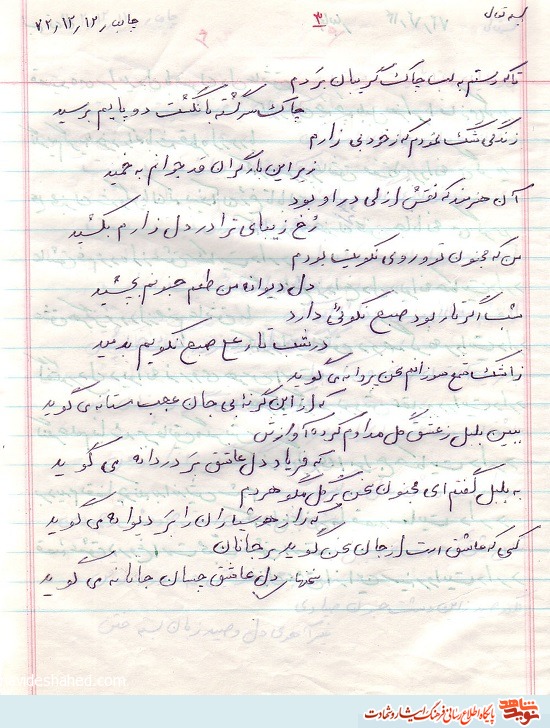 بسمه تعالی
۳
چاپ ۷۲٫۱۲٫۱۲
تا که دستم به لب چاک گریبان بردم
چاک سرگشته بانگشت دو پایم برسید
زندگی تنگ نمودم که ز خود بی زارم
زیر این بار گران قد جوانم به خمید
آن هنرمند که نقش ازلی در او بود
رخ زیبای ترا در دل زارم بکشید
من که مجنون تو و روی نکویت بودم
دل دیوانه من طعم جنونم بچشید
شب اگر تار بود صبح نکوئی دارد
در شب تار صبح نکویم بدمید
ز اشک شمع سوزانم سخن پروانه می گوید
که از این گریه بی جان عجب مستانه می گوید
ببین بلبل ز عشق گل مداوم کرده آوازش
که فریاد دل عاشق پر دردانه می گوید
به بلبل گفتم ای مجنون سخن بر گل مگو هردم
که راز هوشیاران را بر دیوانه می گوید
کسی که عاشق است از جان سخن گوید بر جانان
سخنهای دل عاشق چسان جانانه می گوید
navideshahed.com
نوید شاهد
پایگاه اطلاع رسانی فرهنگ ایثار و شهادت